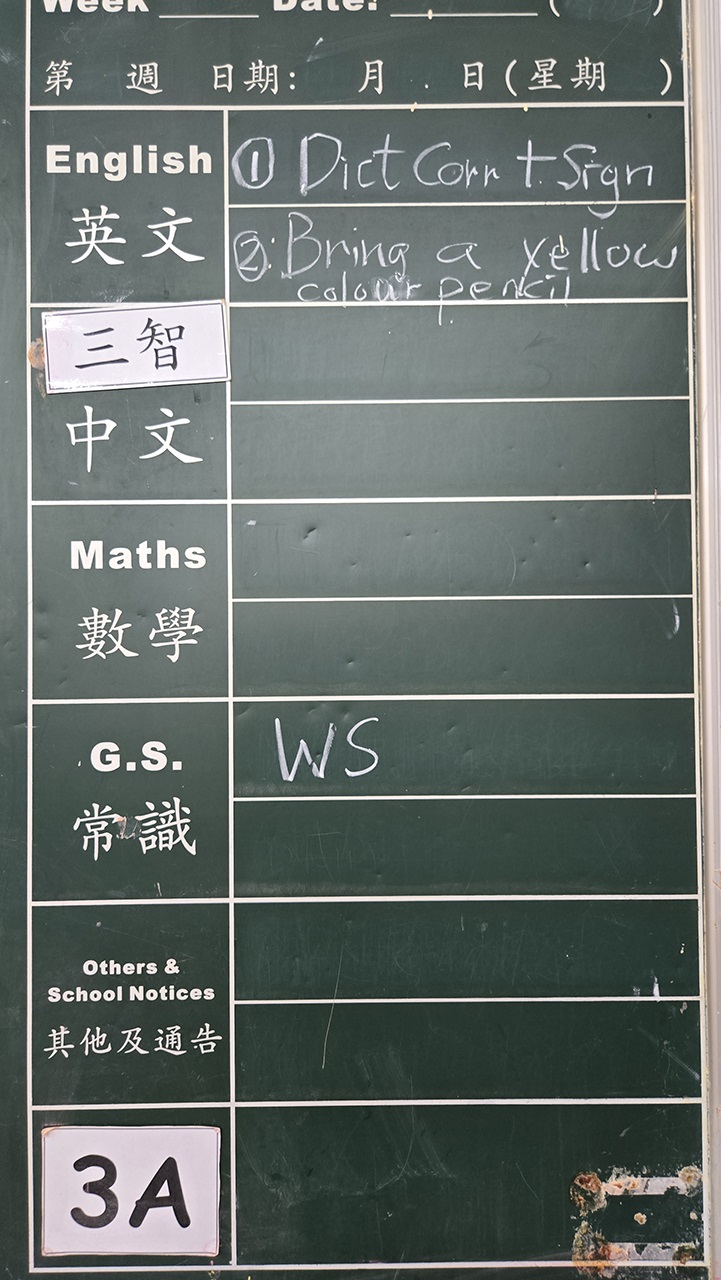 Week ____ Date: ____ ( )
第 週 日期: 月 . 日(星期 )
English
① Dict Corr + Sign
英文
②: Bring a yellow
colour pencil
三智
中文
Maths
數學
G.S.
WS
常識
Others &
School Notices
其他及通告
3A